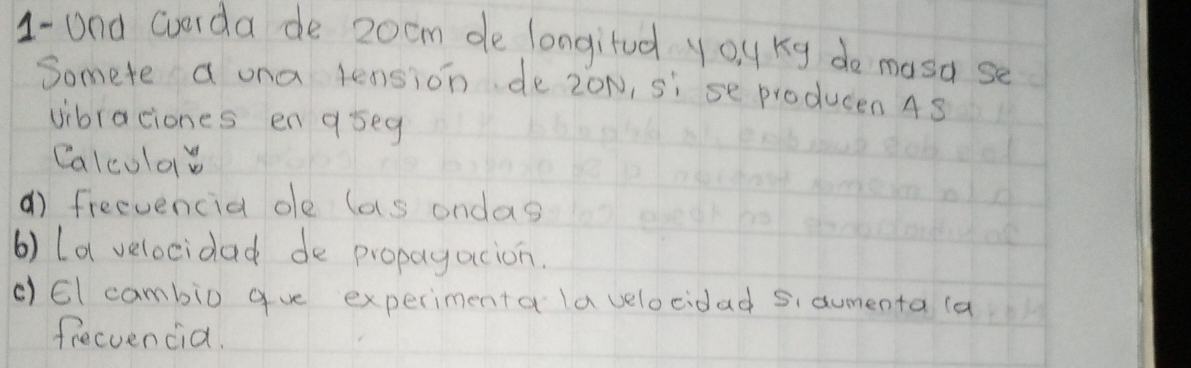 1- Una cuerda de 20cm de longitud y 0,4 Kg de masa se
Somete a una tensión de 20N, si se producen 48
vibraciones en 9 seg
Calcular:
a) frecuencia de las ondas
b) La velocidad de propagacion.
c) El cambio que experimenta la velocidad si aumenta la
frecuencia.